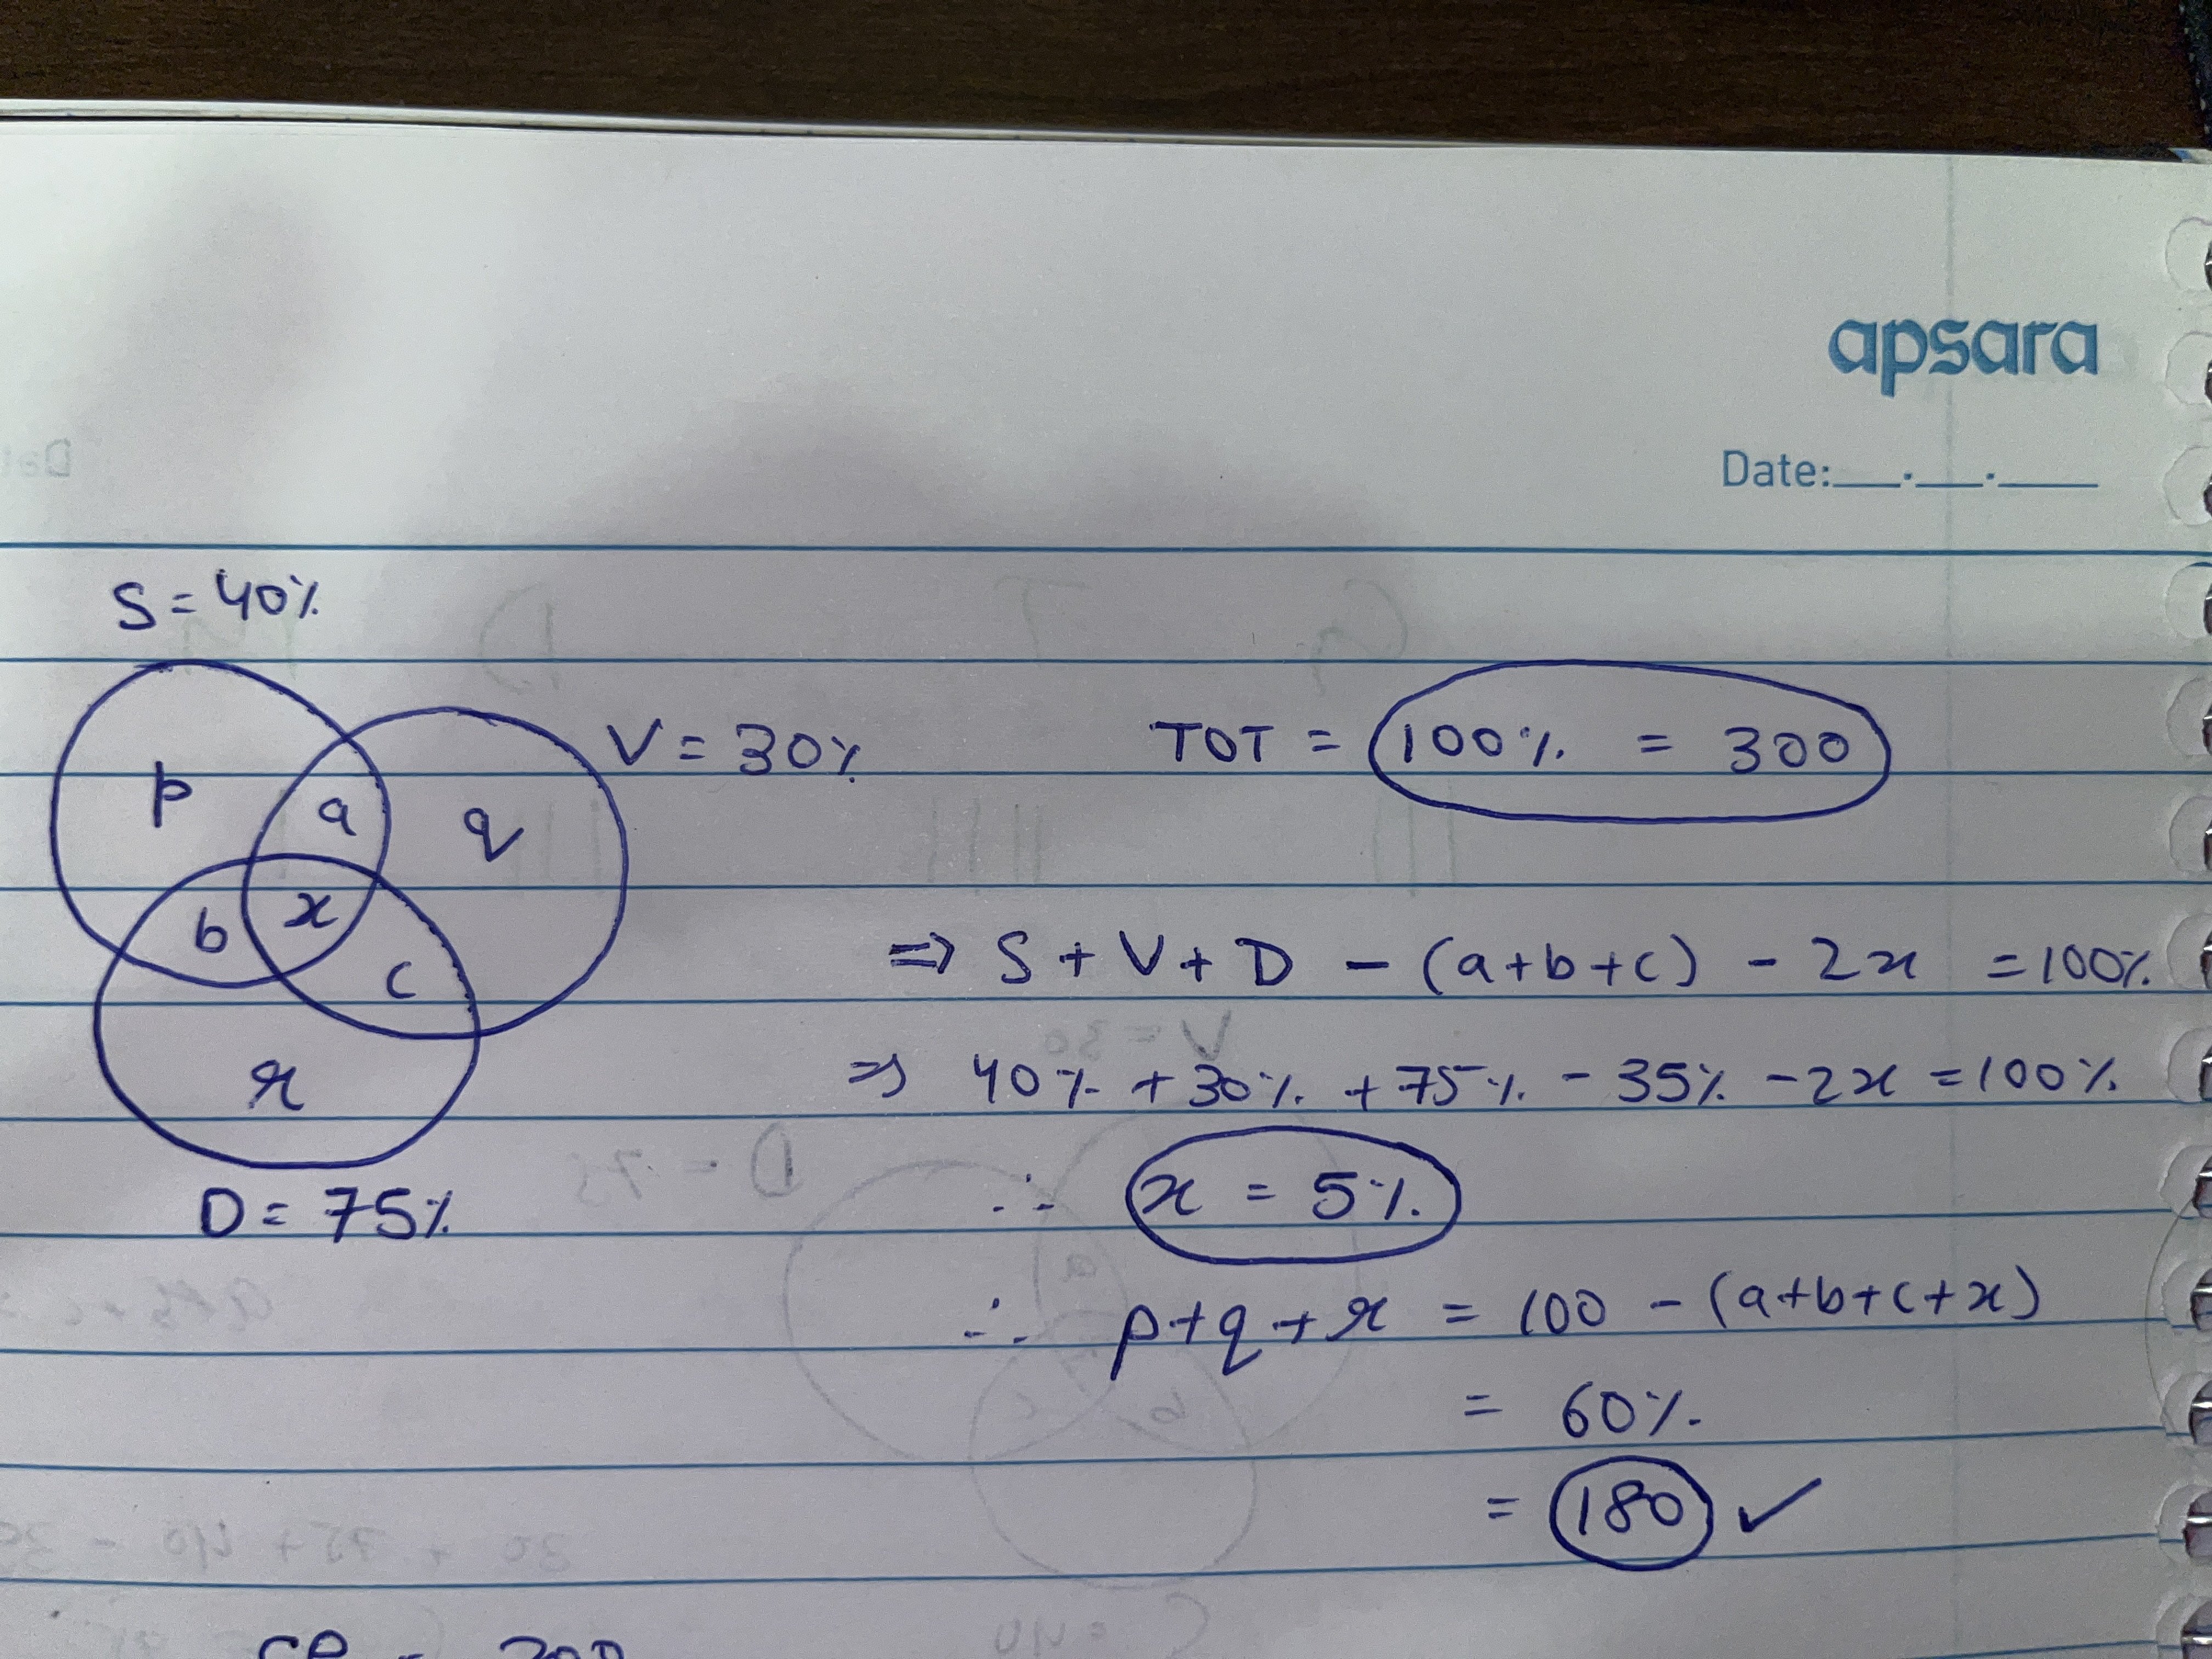 apsara
Date:__.__.__
S = 40%
V = 30%
TOT = 100% = 300
p
a
q
b
x
c
r
D = 75%
⇒ S + V + D - (a+b+c) - 2x = 100%
⇒ 40% + 30% + 75% - 35% - 2x = 100%
∴ x = 5%
∴ p+q+r = 100 - (a+b+c+x)
= 60%
= 180 ✓